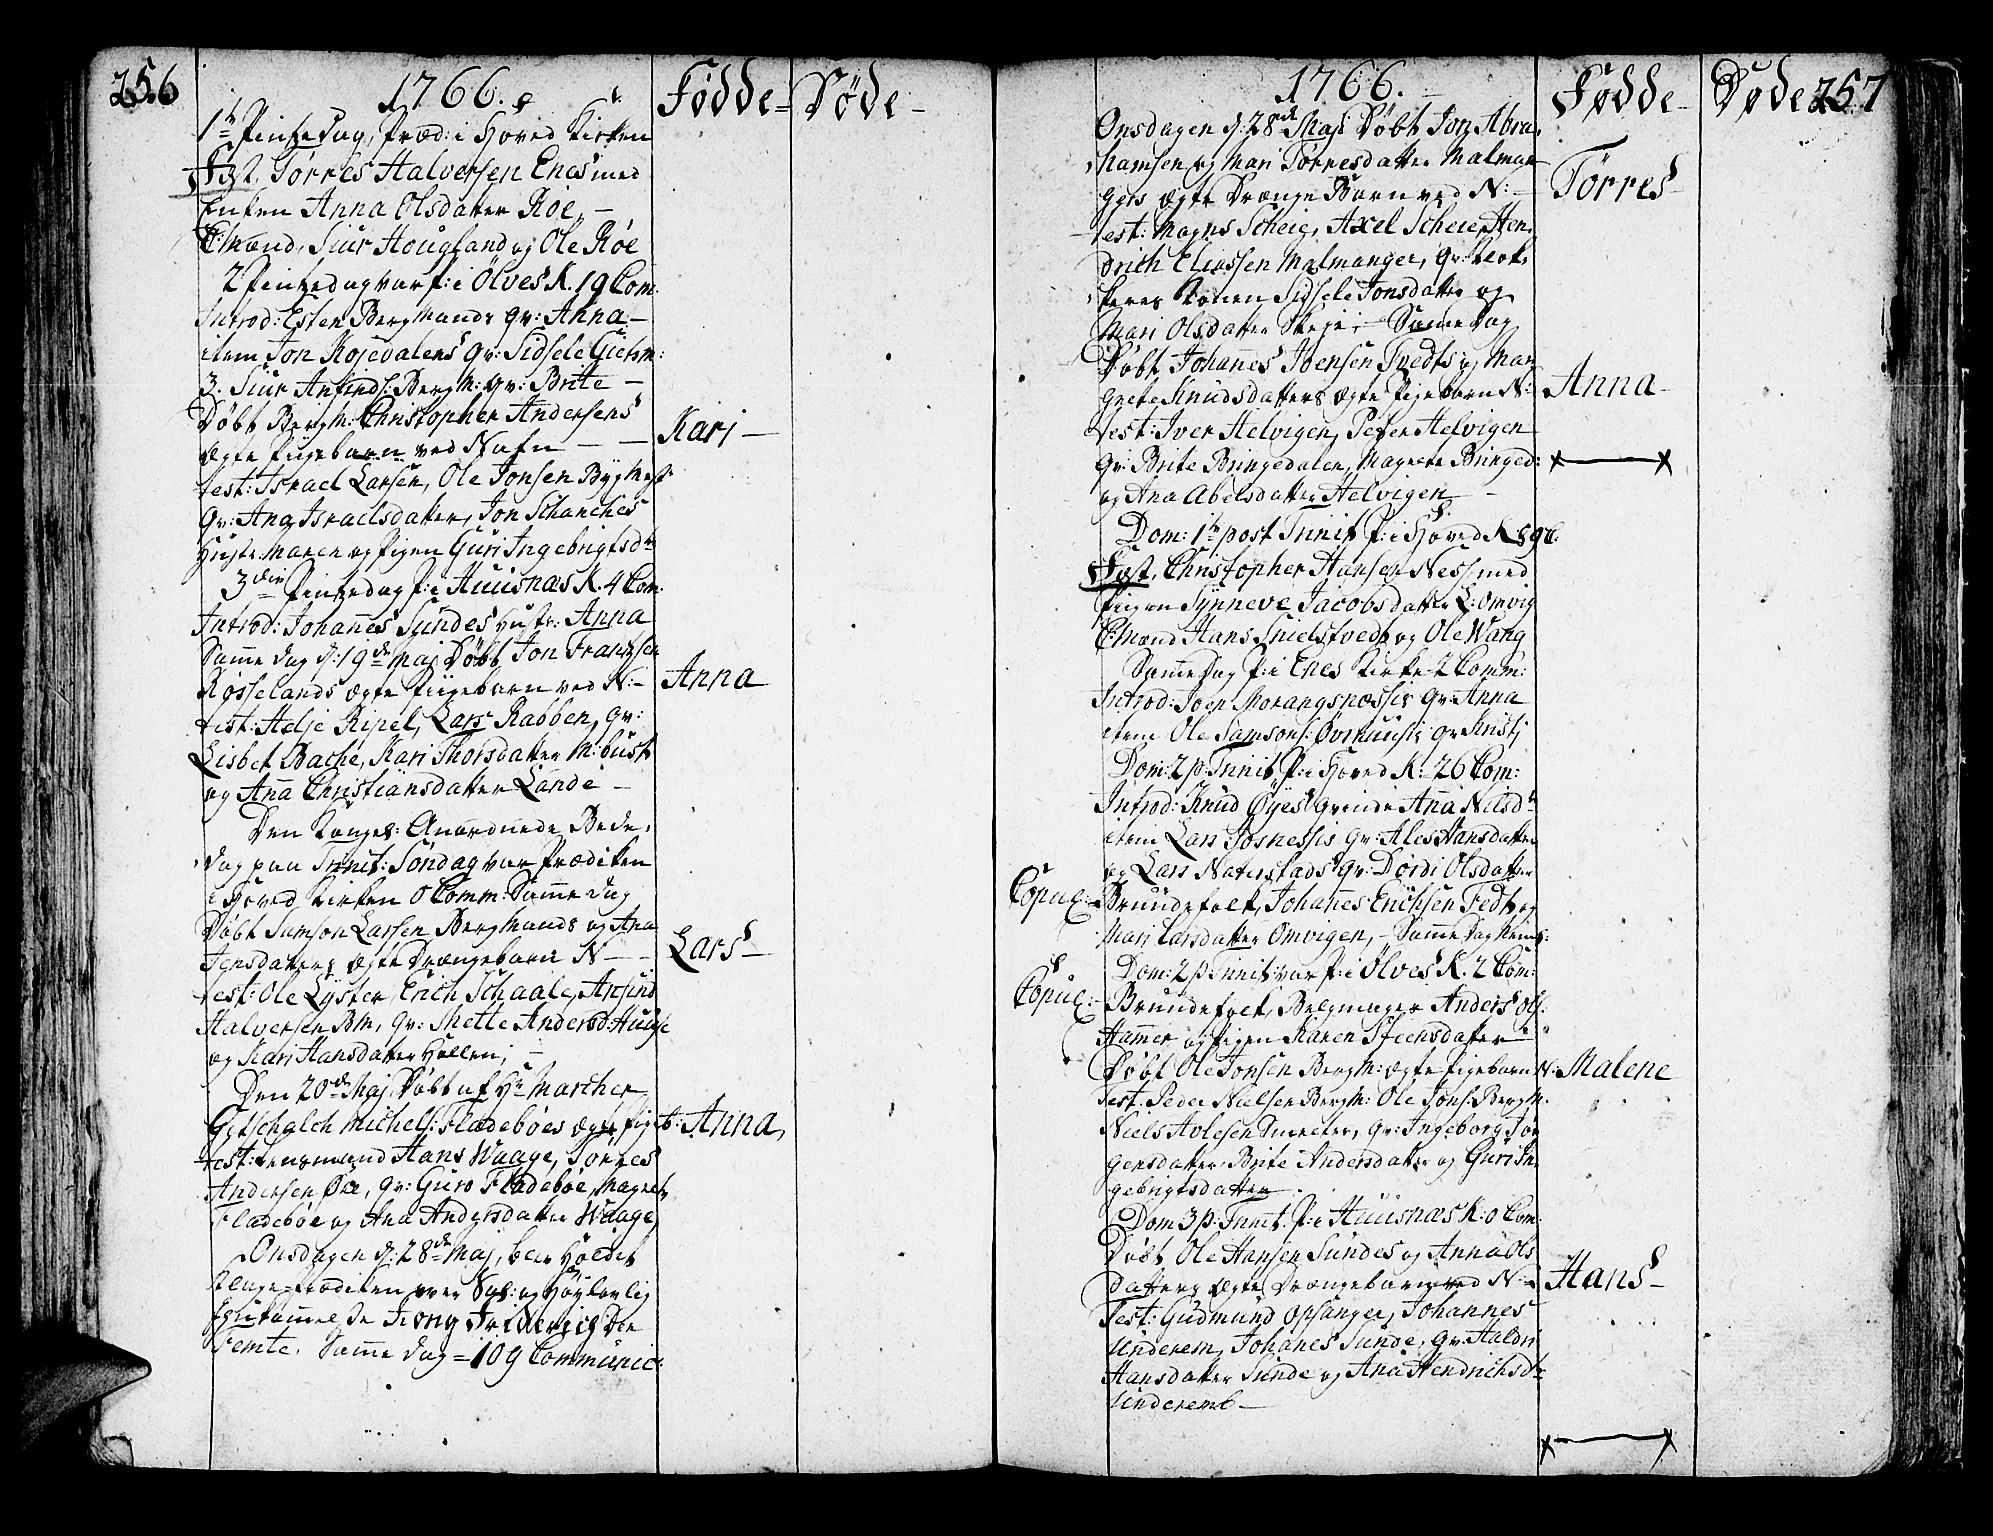 256
1766.
Fødde
Døde
1te Pintzedag, Præd: i Hoved Kirken
Fæst. Tørres Halversen Enes med
Enken Anna Olsdatter Røe, –
C:Mænd, Siur Hougland og Ole Røe
2 Pintzedag var P: i Ølves K. 19 Com.
Introd: Esten Bergmands Qv: Anna –
item Jon Rosedalens Qv: Sidsele
3. Siur Anfinds: Bergm: Qv: Brite –
Døbt Bergm: Christopher Andersens
ægte Pigebarn ved Nafn – –
Kari –
test: Israel Larsen, Ole Jonsen Bygmest
Qv: Ana Israelsdatter, Jon Schanches
Hustr: Maren og Pigen Guri Ingebrigtsdtr
3die Pintzedag P: i Huusnæs K. 4 Com.
Introd: Johañes Sundes Hustr: Anna
Samme dag d: 19de Maj Døbt Jon Frantzsen
Røsselands ægte Piigebarn ved N: –
Anna
test: Helje Ripel, Lars Rabben, Qv:
Lisbet Bache, Kari Thorsdatter
og Aña Christiansdatter Lande –
Den Konges: Anordnede Bede-
dag paa Trinit: Søndag var Prædiken
i Hoved Kirken 0 Comm: Samme dag
Døbt Samson Larsen Bergmands og Ana
Jensdatters ægte Drængebarn N – –
Lars –
test: Ole Lyster, Erich Schaale, Ansind
Halversen Bm, Qv: Mette Andersd:
og Kari Hansdatter Hollen, –
Den 20de Maj Døbt af Hr Marcher
Gotschalch Michels: Fladebøes ægte Pigeb:
Anna,
test: Lensmand Hans Waage, Torres
Andersen Øre, Qv: Guro Fladebøe, Magrete
Fladebøe og Ana Andersdatter Waage,
Onsdagen d: 28de Maj, blev Holdet
Klage-Prædiken over Sal: og Høylovlig
Ihukommelse Kong Friderich den
Femte. Samme dag = 109 Communic:
1766.
Fødde
Døde 257
Onsdagen d: 28de Maji Døbt Jon Abra-
hamsen og Mari Tørresdatter Malman-
gers ægte Drænge Barn ved N: –
Törres
test: Magns Scheie, Axel Scheie, Hen-
drich Eliassen Malmanger, Qv: Klok-
kerens Konen Sidsele Jonsdatter og
Mari Olsdatter Skeje – Samme dag
Døbt Johañes Joensen Tvedts og Mar-
grete Knudsdatters ægte Pigebarn N:
Anna
test: Iver Helvigen, Peter Helvigen
Qv: Brite Bringedalen, Magrete Bringed:
og Ana Abelsdatter Helvigen –
Dom: 1te post Trinit P: i Hoved K 89 C.
Fæst. Christopher Hansen Ness med
Pigen Synneve Jacobsdatter L: Omvig
C:Mænd Hans Snielstvedt og Ole Wang
Samme dag P: i Enes Kirke 2 Comm:
Introd: Joen Morangsnæssis Qv: Anna
item Ole Samsons: Øvrhuusis Qv Kristj
Dom: 2 p: Trinit P: i Hoved K: 26 Com:
Introd: Knud Øyes Qvinde Aña Nilsdtr
item Lars Josnessis Qv: Ales Hansdatter
og Lars Naterstads Qv: Dordi Olsdatter
Copul:
Brudefolk, Johañes Erichsen Fedt og
Mari Larsdatter Omvigen, – Samme dag
Dom: 2 p Trinit: var P: i Ølves K. 2 Com:
Copul: –
Brudefolk, Belgmager Anders Ols:
Hammer og Pigen Karen Steensdatter –
Døbt Ole Jonsen Bergm: ægte Pigebarn N:
Malene
test: Peder Nielsen Bergm: Ole Jons: Bergm.
Niels Avlesen Smelter, Qv: Ingeborg Tor-
gersdatter, Brite Andersdatter og Guri In-
gebrigtsdatter –
Dom 3 p: Trinit. P: i Huusnæs K: 0 Com.
Døbt Ole Hansen Sundes og Anna Ols
Datters ægte Drængebarn ved N –
Hans –
Test: Gudmund Opsanger, Johannes
Underem, Johanes Sunde, Qv: Haldri
Hansdatter Sunde og Ana Hendrichsdtr
Underemb –